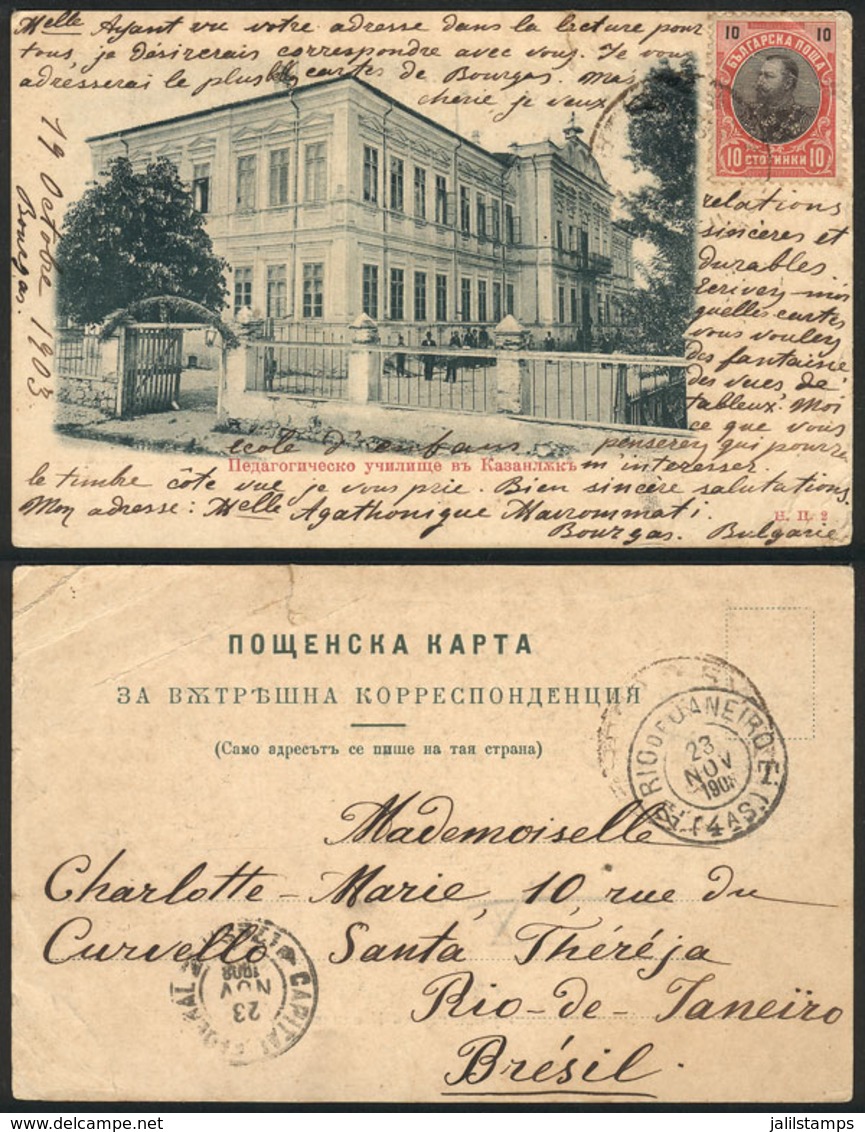 Melle Ayant vu votre adresse dans la lecture pour
tous, je désirerais correspondre avec vous. Je vous
adresserai le plus de cartes de Bourgas. Mas
cherie je veux
relations
sincères et
durables.
Ecrivez-moi
quelles cartes
vous voulez
des fantaisie
des vues de
tableux. Moi
ce que vous
penserez qui pourre
m'interesser.
le timbre côte vue je vous prie. Bien sincère salutations.
Mon adresse: Melle Agathonique Mavrommati.
Bourgas. Bulgarie
19 Octobre 1903
Bourgas.
école d'enfans
10 10
БЪЛГАРСКА ПОЩА
10 СТОТИНКИ 10
Педагогическо училище въ Казанлѫкъ
Н. Ц. 2
ПОЩЕНСКА КАРТА
ЗА ВѪТРѢШНА КОРРЕСПОНДЕНЦИЯ
(Само адресътъ се пише на тая страна)
RIO DE JANEIRO
23
NOV
(4 AS)
T
Mademoiselle
Charlotte-Marie, 10, rue du
Curvello Santa Théréja
Rio-de-Janeïro
Brésil.
CAPITAL FEDERAL
23
NOV
jalilstamps